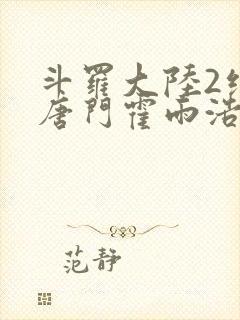 斗羅大陸2
唐門霍雨浩
范靜